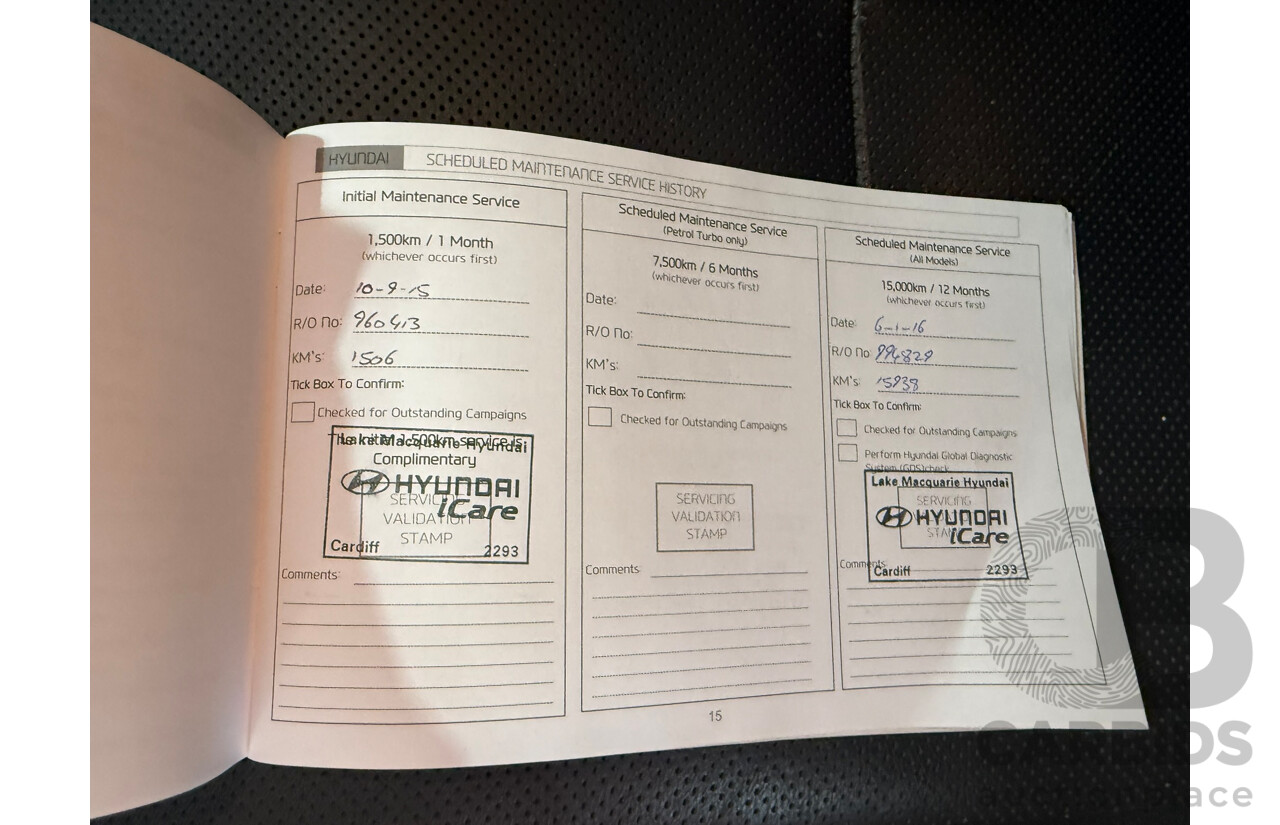 HYUNDAI SCHEDULED MAINTENANCE SERVICE HISTORY
Initial Maintenance Service
1,500km / 1 Month
(whichever occurs first)
Date: 10-9-15
R/O No: 960413
KM's: 1506
Tick Box To Confirm:
Checked for Outstanding Campaigns
The initial 1,500km service is
Lake Macquarie Hyundai
Complimentary
HYUNDAI
iCare
SERVICING
VALIDATION
STAMP
Cardiff 2293
Comments:
Scheduled Maintenance Service
(Petrol Turbo only)
7,500km / 6 Months
(whichever occurs first)
Date:
R/O No:
KM's:
Tick Box To Confirm:
Checked for Outstanding Campaigns
SERVICING
VALIDATION
STAMP
Comments:
Scheduled Maintenance Service
(All Models)
15,000km / 12 Months
(whichever occurs first)
Date: 6-1-16
R/O No 994829
KM's: 15938
Tick Box To Confirm:
Checked for Outstanding Campaigns
Perform Hyundai Global Diagnostic
System (GDS)check
Lake Macquarie Hyundai
SERVICING
HYUNDAI
STAMP
iCare
Comments
Cardiff 2293
15